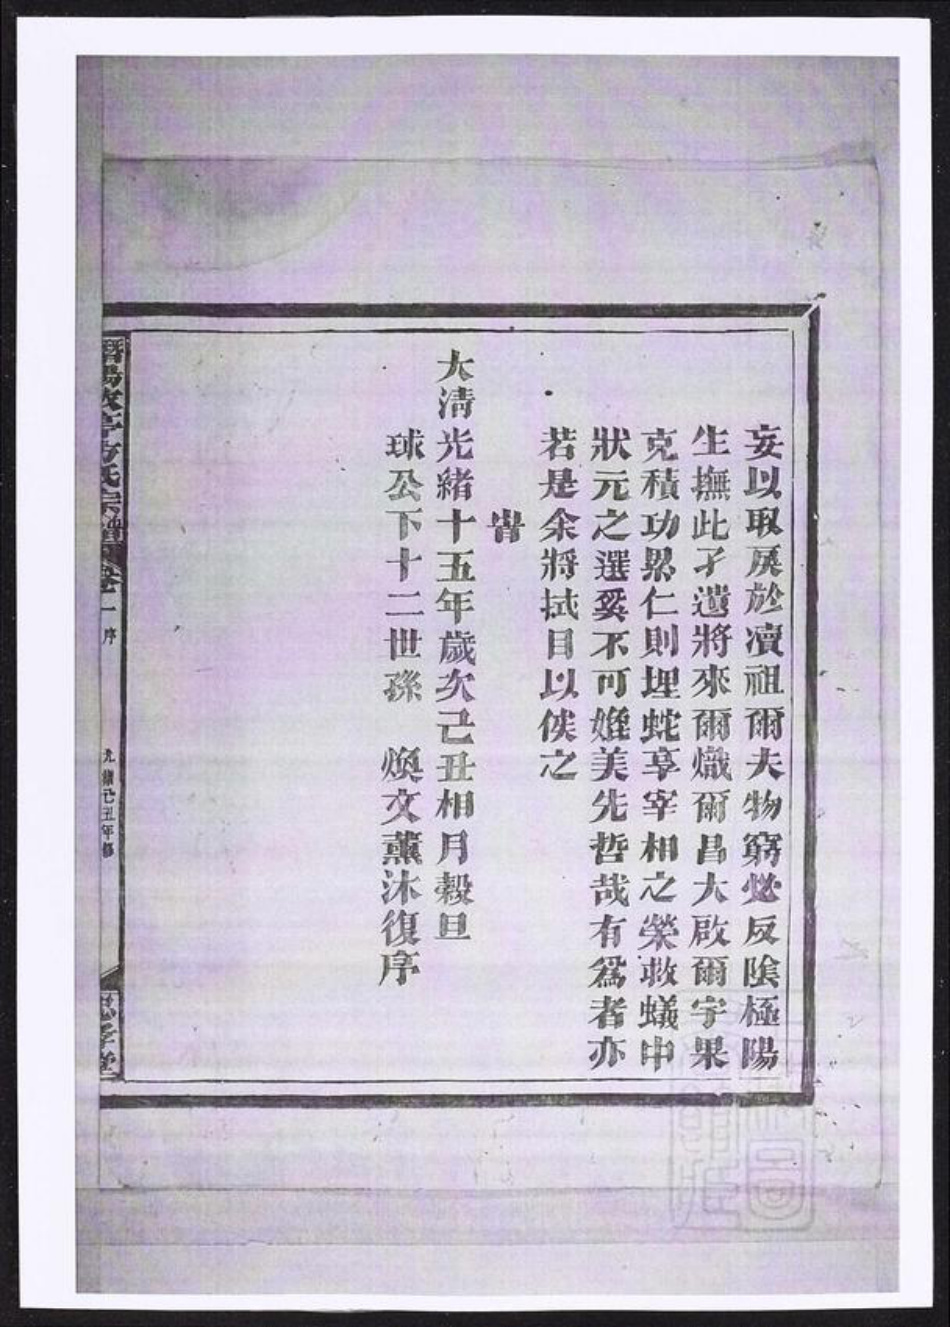 妄以取戾於瀆祖爾夫物窮必反陰極陽
生撫此孑遺將來爾熾爾昌大啟爾宇果
克積功累仁則埋蛇享宰相之榮救蟻中
狀元之選奚不可媲美先哲哉有爲者亦
若是余將拭目以俟之
旹
大清光緒十五年歲次己丑相月穀旦
球公下十二世孫 煥文薰沐復序
亭方氏宗譜 卷一 序 光緒己丑年修 思孝堂